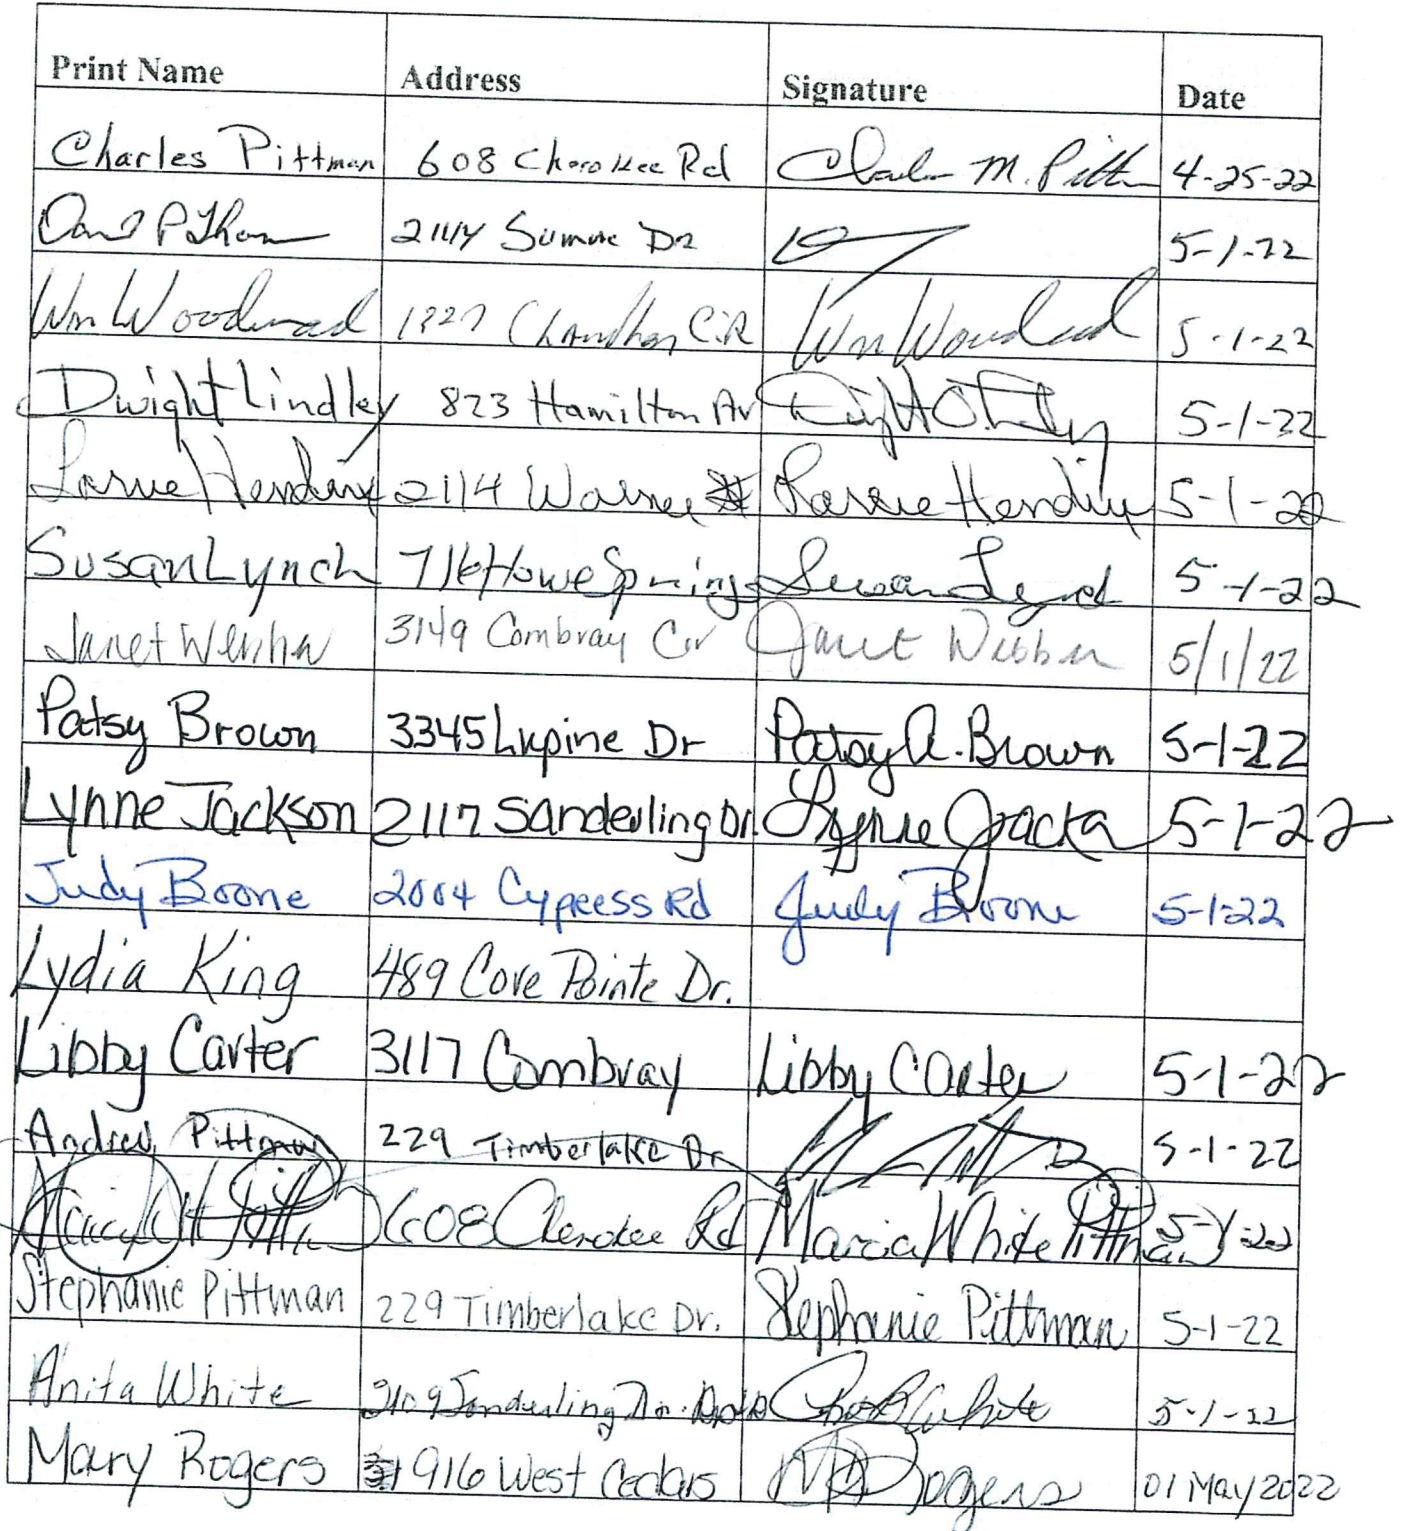 Print Name Address Signature Date
Charles Pittman 608 Cherokee Rd Charles M. Pittm 4-25-22
2114 Sumac Dr 5-1-22
Wm Woodward Cir Wm Woodward 5-1-22
Dwight Lindley 823 Hamilton Av 5-1-22
Larue Hendrix 2114 Larue Hendrix 5-1-22
Susan Lynch 716 Howe Springs Susan Lynch 5-1-22
Janet 3149 Combray Cir Janet Webber 5/1/22
Patsy Brown 3345 Lupine Dr Patsy A. Brown 5-1-22
Lynne Jackson 2117 Sanderling Dr. Lynne Jackson 5-1-22
Judy Boone 2004 Cypress Rd Judy Boone 5-1-22
Lydia King 489 Cove Pointe Dr.
Libby Carter 3117 Combray Libby Carter 5-1-22
Andrew Pittman 229 Timberlake Dr 5-1-22
608 Cherokee Rd Marcia White Pittman 5-1-22
Stephanie Pittman 229 Timberlake Dr. Stephanie Pittman 5-1-22
Anita White 2109 Sanderling Dr. White 5-1-22
Mary Rogers 1916 West Cedars Rogers 01 May 2022